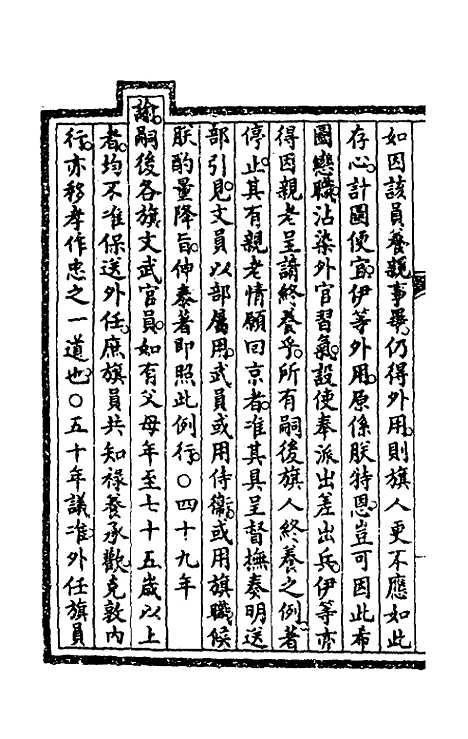 如因該員養親事畢仍得外用則旗人更不應如此
存心計圖便宜伊等外用原係朕特恩豈可因此希
圖戀職沾染外官習氣設使奉派出差出兵伊等亦
得因親老呈請終養乎所有嗣後旗人終養之例著
停止其有親老情願回京者准其具呈督撫奏明送
部引見文員以部屬用武員或用侍衞或用旗職候
朕酌量降旨伸泰著即照此例行○四十九年
諭嗣後各旗文武官員如有父母年至七十五歲以上
者均不准保送外任庶旗員共知祿養承歡克敦內
行亦移孝作忠之一道也○五十年議准外任旗員